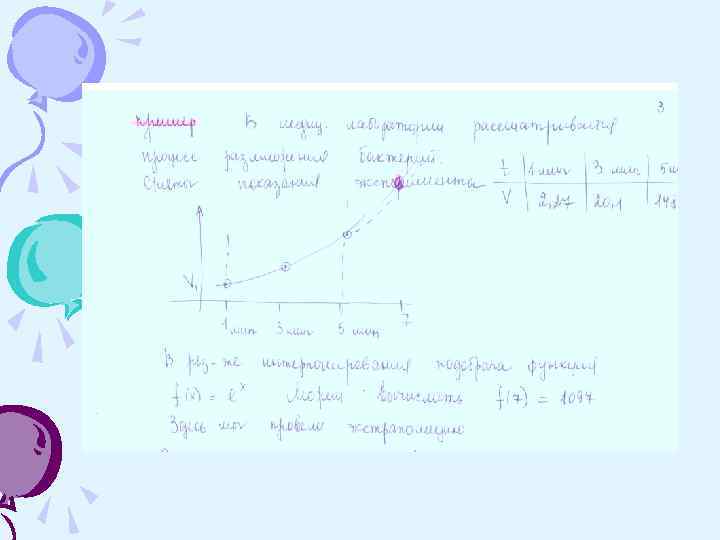 3
Пример В медиц. лаборатории рассматривается
процесс размножения бактерий.
Сняты показания эксперимента
t 1 мин 3 мин 5м
V 2,17 20,1 148
V₁
1 мин 3 мин 5 мин 7
В рез-те интерполирования подобрана функция
f(x) = eˣ Можем вычислить f(7) = 1097
Здесь мы провели экстраполяцию